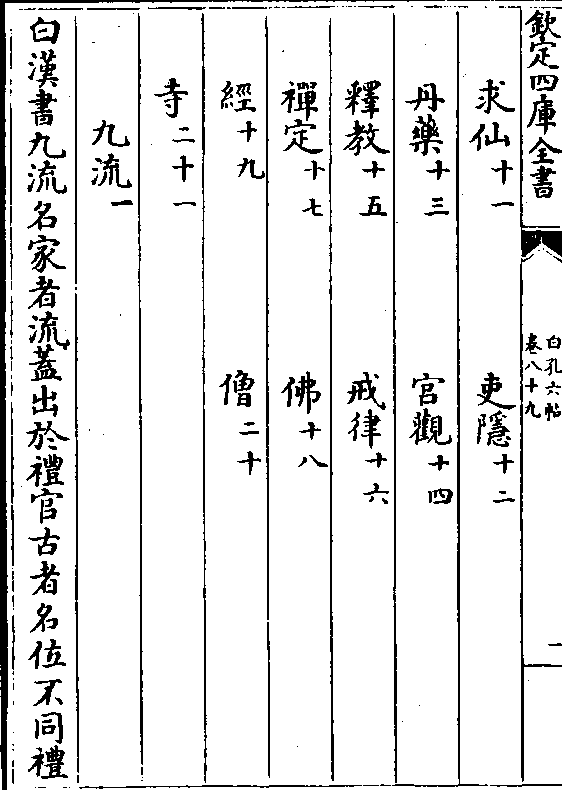 欽定四庫全書
白孔六帖
卷八十九
二
求仙十一 吏隱十二
丹藥十三 宮觀十四
釋教十五 戒律十六
禪定十七 佛十八
經十九 僧二十
寺二十一
九流一
白漢書九流名家者流蓋出於禮官古者名位不同禮